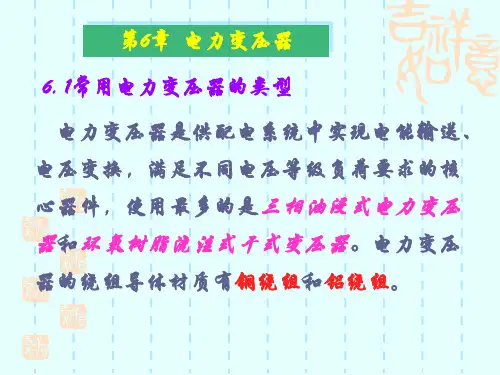 第6章 电力变压器
6.1常用电力变压器的类型
电力变压器是供配电系统中实现电能输送、
电压变换，满足不同电压等级负荷要求的核
心器件，使用最多的是三相油浸式电力变压
器和环氧树脂浇注式干式变压器。电力变压
器的绕组导体材质有铜绕组和铝绕组。
吉祥如意